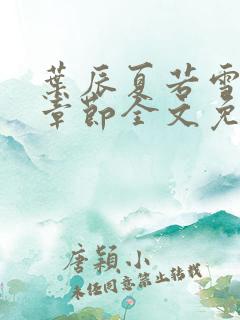 葉辰夏若雪
章節全文免
唐穎小
未经同意禁止转载